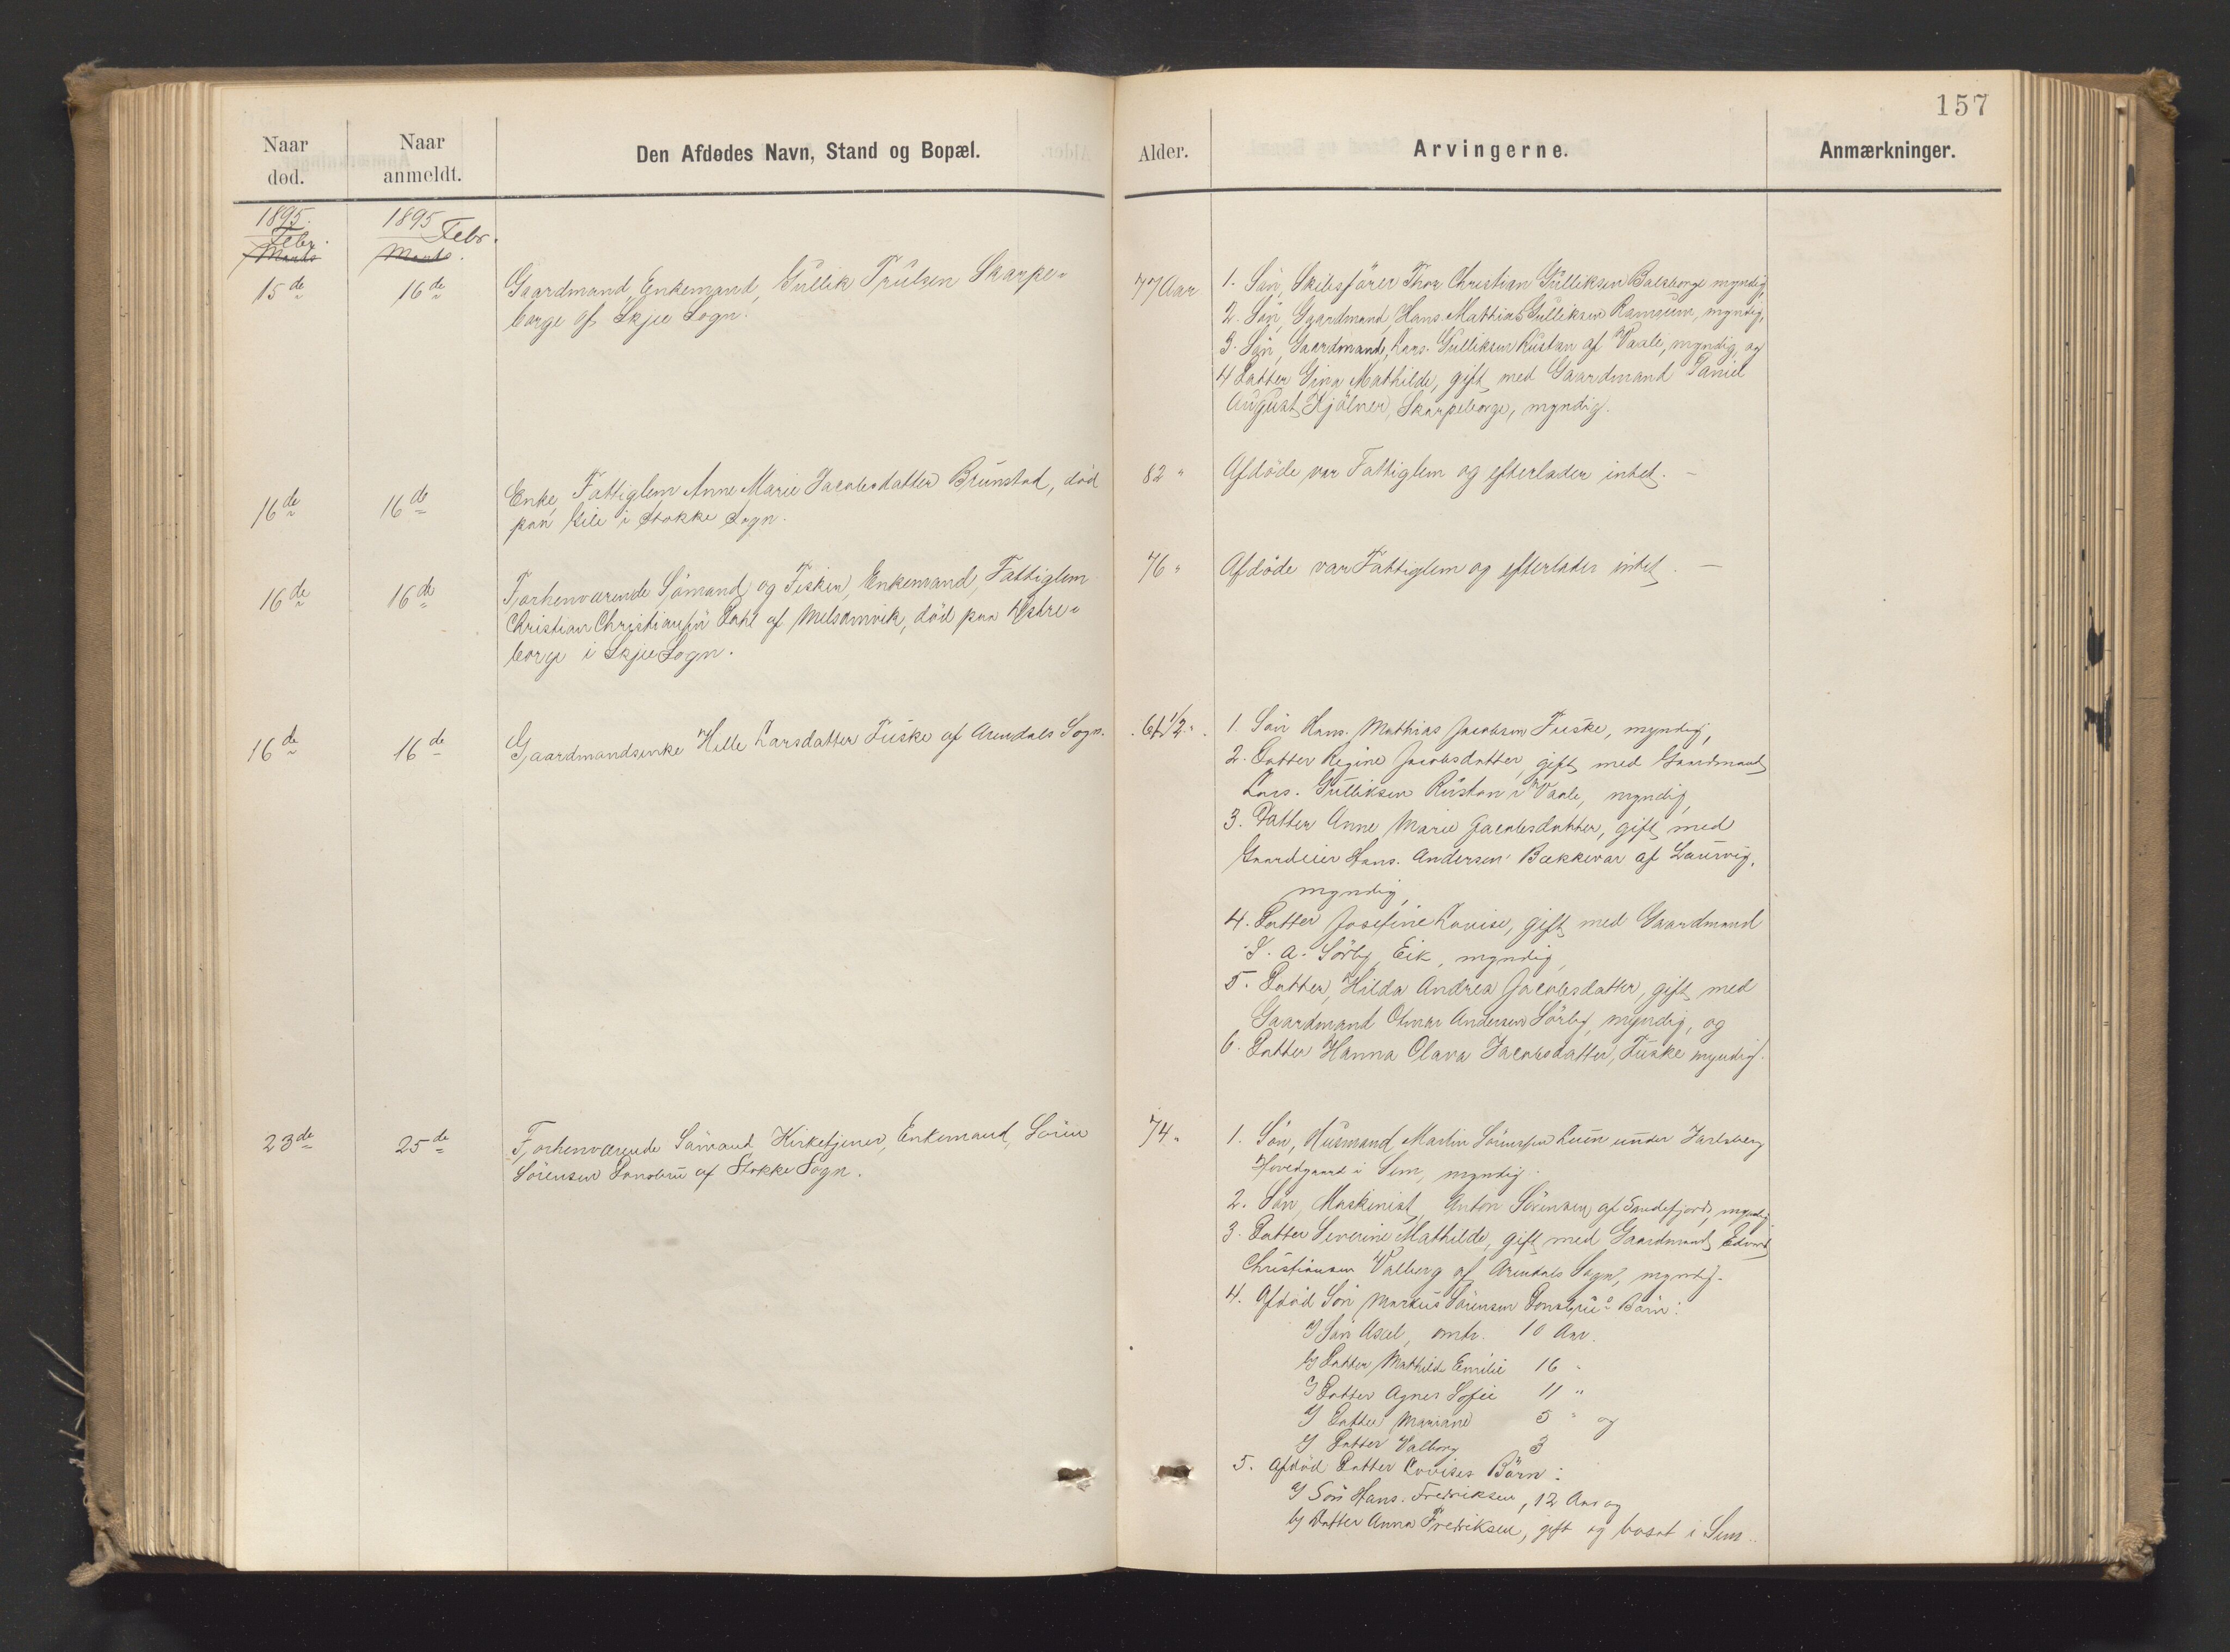 157
Naar død.
Naar anmeldt.
Den Afdødes Navn, Stand og Bopæl.
Alder.
Arvingerne.
Anmærkninger.
1895.
Febr.
Marts
1895
Febr.
Marts.
15de
16de
Gaardmand, Enkemand, Gullik Trulsen Skarpe-
borge af Skjee Sogn.
77 Aar
1. Søn, Skibsfører Thor Christian Gulliksen Borge myndig,
2. Søn, Gaardmand, Hans Mathias Gulliksen Ramsum, myndig,
3. Søn, Gaardmand, Lars Gulliksen Rustan af Vaale, myndig, og
4 Datter Gina Mathilde, gift med Gaardmand Daniel
August Kjølner, Skarpeborge, myndig.
16de
16de
Enke, Fattiglem Anne Marie Jacobsdatter Brunstad, død
paa i Stokke Sogn.
82 "
Afdøde var Fattiglem og efterlader intet. —
16de
16de
Forhenværende Sømand og Fisker, Enkemand, Fattiglem
Christian Christiansen Dahl af Melsomvik, død paa Østre-
borge i Skjee Sogn.
76 "
Afdøde var Fattiglem og efterlader intet. —
16de
16de
Gaardmandsenke Helle Larsdatter Fuske af Arendals Sogn.
61 1/2 "
1. Søn Hans Mathias Jacobsen Fuske, myndig,
2. Datter Regine Jacobsdatter, gift med Gaardmand
Lars Gulliksen Rustan i Vaale, myndig,
3. Datter Anne Marie Jacobsdatter, gift med
Gaardeier Hans Andersen Bækkevar af Laurvig,
myndig,
4. Datter Josefine Lovise, gift med Gaardmand
S. A. Sørby, Eik, myndig,
5. Datter, Hilda Andrea Jacobsdatter, gift med
Gaardmand Otmar Andersen Sørby, myndig, og
6. Datter Hanna Olava Jacobsdatter, Fuske myndig.
23de
25de
Forhenværende Sømand, Kirketjener, Enkemand, Søren
Sørensen af Stokke Sogn.
74 "
1. Søn, Husmand, Martin Sørensen Lunn under Jarlsberg
Hovedgaard i Sem, myndig.
2. Søn, Maskinist, Anton Sørensen af Sandefjord, myndig
3. Datter Severine Mathilde, gift med Gaardmand Edvard
Christiansen Valberg af Arendals Sogn, myndig.
4. Afdød Søn Markus Sørensen Børn:
a) Søn Axel, omtr. 10 Aar.
b) Datter Mathilde Emilie 16 "
c) Datter Agnes Sofie 11 "
d) Datter Mariane 5 " og
e) Datter Valborg 3
5. Afdød Datter Lovises Børn:
a) Søn Hans Fredriksen, 12 Aar og
b) Datter Anna Fredriksen, gift og bosat i Sem.